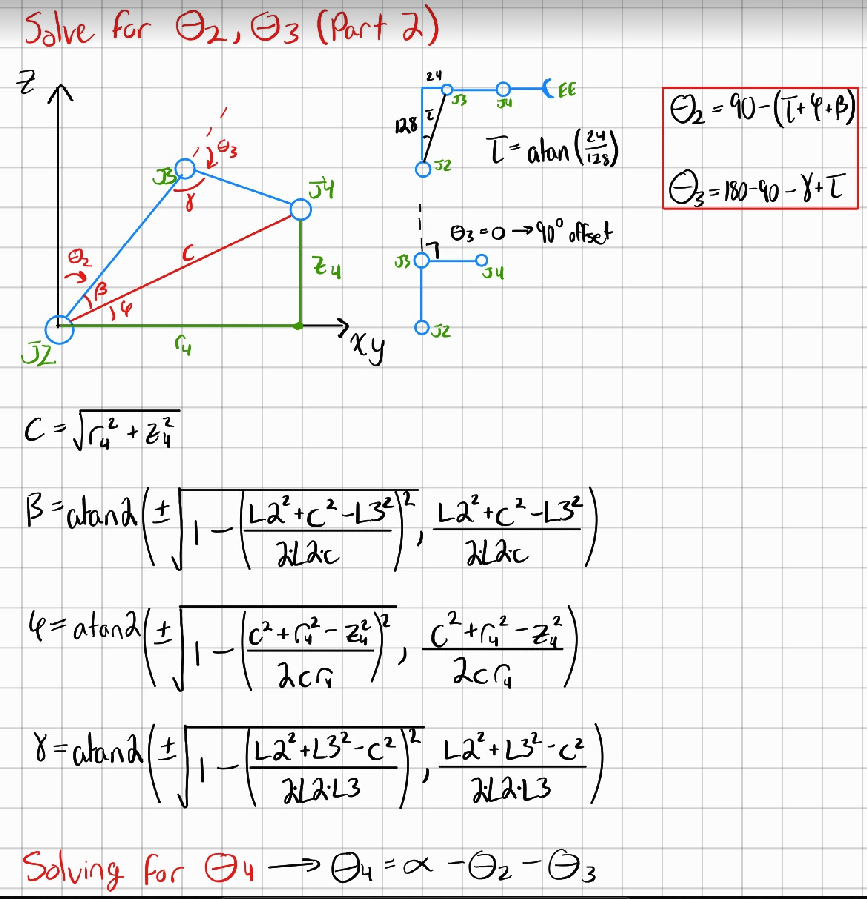 Solve for Θ2, Θ3 (Part 2)
Z
J3
θ3
γ
J4
θ2
β
φ
C
Z4
J2
r4
xy
24
J3
J4
EE
128
τ
J2
τ = atan(24/128)
θ3 = 0 → 90° offset
J3
J4
J2
Θ2 = 90 - (τ + φ + β)
Θ3 = 180 - 90 - γ + τ
C = √(r4² + z4²)
β = atan2(±√(1 - ((L2² + C² - L3²)/(2·L2·C))²), (L2² + C² - L3²)/(2·L2·C))
φ = atan2(±√(1 - ((C² + r4² - z4²)/(2Cr4))²), (C² + r4² - z4²)/(2Cr4))
γ = atan2(±√(1 - ((L2² + L3² - C²)/(2·L2·L3))²), (L2² + L3² - C²)/(2·L2·L3))
Solving for Θ4 → Θ4 = α - Θ2 - Θ3